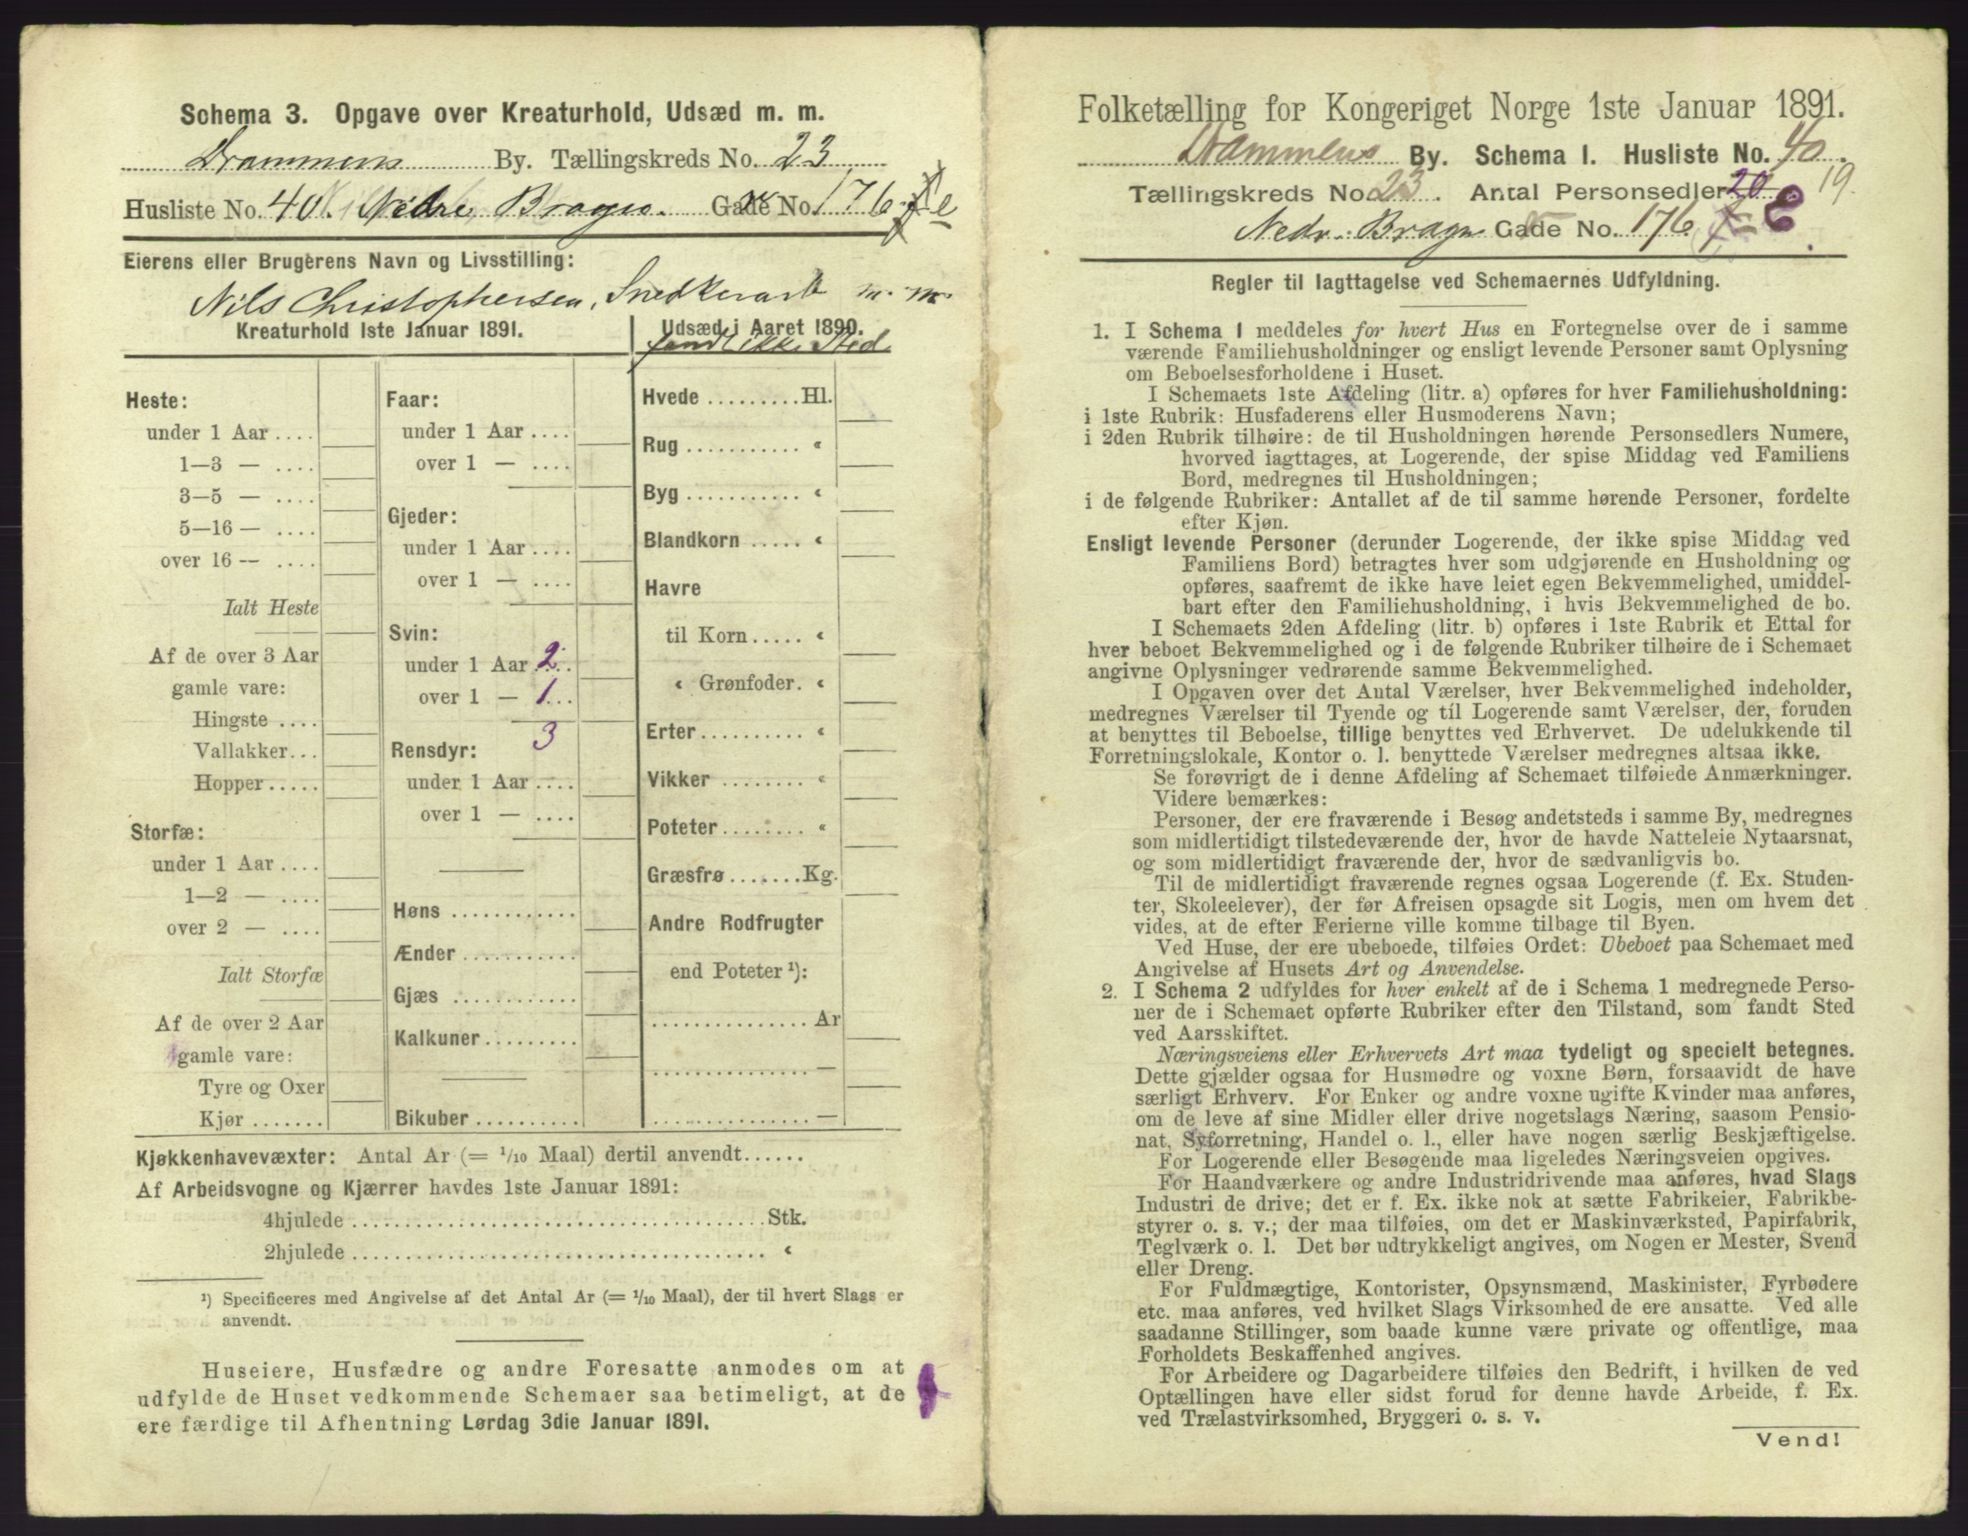 Schema 3. Opgave over Kreaturhold, Udsæd m. m.
Drammens By. Tællingskreds No. 23
Husliste No. 40. Nedre Brages. Gade No. 176 e
Eierens eller Brugerens Navn og Livsstilling:
Nils Christophersen, Snedkerarb m. m.
Kreaturhold 1ste Januar 1891.
Heste:
under 1 Aar ....
1—3 — ....
3—5 — ....
5—16 — ....
over 16 — ....
Ialt Heste
Af de over 3 Aar
gamle vare:
Hingste ....
Vallakker...
Hopper.....
Storfæ:
under 1 Aar ....
1—2 — ....
over 2 — ....
Ialt Storfæ
Af de over 2 Aar
gamle vare:
Tyre og Oxer
Kjør .......
Faar:
under 1 Aar ....
over 1 — ....
Gjeder:
under 1 Aar ....
over 1 — ....
Svin:
under 1 Aar 2
over 1 — 1
3
Rensdyr:
under 1 Aar ....
over 1 — ....
Høns ............
Ænder ...........
Gjæs ............
Kalkuner .........
Bikuber ..........
Udsæd i Aaret 1890.
fandt ikke Sted
Hvede .........Hl.
Rug ........... «
Byg ........... «
Blandkorn ..... «
Havre
til Korn ..... «
« Grønfoder. «
Erter.......... «
Vikker ........ «
Poteter ........ «
Græsfrø .......Kg.
Andre Rodfrugter
end Poteter ¹):
............... Ar
............... —
............... —
Kjøkkenhavevæxter: Antal Ar (= 1/10 Maal) dertil anvendt......
Af Arbeidsvogne og Kjærrer havdes 1ste Januar 1891:
4hjulede ........................................Stk.
2hjulede ........................................ «
¹) Specificeres med Angivelse af det Antal Ar (= 1/10 Maal), der til hvert Slags er
anvendt.
Huseiere, Husfædre og andre Foresatte anmodes om at
udfylde de Huset vedkommende Schemaer saa betimeligt, at de
ere færdige til Afhentning Lørdag 3die Januar 1891.
Folketælling for Kongeriget Norge 1ste Januar 1891.
Drammens By. Schema I. Husliste No. 40
Tællingskreds No. 23. Antal Personsedler 20 19.
Nedr. Brags Gade No. 176 e
Regler til Iagttagelse ved Schemaernes Udfyldning.
1. I Schema 1 meddeles for hvert Hus en Fortegnelse over de i samme
værende Familiehusholdninger og ensligt levende Personer samt Oplysning
om Beboelsesforholdene i Huset.
I Schemaets 1ste Afdeling (litr. a) opføres for hver Familiehusholdning:
i 1ste Rubrik: Husfaderens eller Husmoderens Navn;
i 2den Rubrik tilhøire: de til Husholdningen hørende Personsedlers Numere,
hvorved iagttages, at Logerende, der spise Middag ved Familiens
Bord, medregnes til Husholdningen;
i de følgende Rubriker: Antallet af de til samme hørende Personer, fordelte
efter Kjøn.
Ensligt levende Personer (derunder Logerende, der ikke spise Middag ved
Familiens Bord) betragtes hver som udgjørende en Husholdning og
opføres, saafremt de ikke have leiet egen Bekvemmelighed, umiddel-
bart efter den Familiehusholdning, i hvis Bekvemmelighed de bo.
I Schemaets 2den Afdeling (litr. b) opføres i 1ste Rubrik et Ettal for
hver beboet Bekvemmelighed og i de følgende Rubriker tilhøire de i Schemaet
angivne Oplysninger vedrørende samme Bekvemmelighed.
I Opgaven over det Antal Værelser, hver Bekvemmelighed indeholder,
medregnes Værelser til Tyende og til Logerende samt Værelser, der, foruden
at benyttes til Beboelse, tillige benyttes ved Erhvervet. De udelukkende til
Forretningslokale, Kontor o. l. benyttede Værelser medregnes altsaa ikke.
Se forøvrigt de i denne Afdeling af Schemaet tilføiede Anmærkninger.
Videre bemærkes:
Personer, der ere fraværende i Besøg andetsteds i samme By, medregnes
som midlertidigt tilstedeværende der, hvor de havde Natteleie Nytaarsnat,
og som midlertidigt fraværende der, hvor de sædvanligvis bo.
Til de midlertidigt fraværende regnes ogsaa Logerende (f. Ex. Studen-
ter, Skoleelever), der før Afreisen opsagde sit Logis, men om hvem det
vides, at de efter Ferierne ville komme tilbage til Byen.
Ved Huse, der ere ubeboede, tilføies Ordet: Ubeboet paa Schemaet med
Angivelse af Husets Art og Anvendelse.
2. I Schema 2 udfyldes for hver enkelt af de i Schema 1 medregnede Perso-
ner de i Schemaet opførte Rubriker efter den Tilstand, som fandt Sted
ved Aarsskiftet.
Næringsveiens eller Erhvervets Art maa tydeligt og specielt betegnes.
Dette gjælder ogsaa for Husmødre og voxne Børn, forsaavidt de have
særligt Erhverv. For Enker og andre voxne ugifte Kvinder maa anføres,
om de leve af sine Midler eller drive nogetslags Næring, saasom Pensio-
nat, Syforretning, Handel o. l., eller have nogen særlig Beskjæftigelse.
For Logerende eller Besøgende maa ligeledes Næringsveien opgives.
For Haandværkere og andre Industridrivende maa anføres, hvad Slags
Industri de drive; det er f. Ex. ikke nok at sætte Fabrikeier, Fabrikbe-
styrer o. s. v.; der maa tilføies, om det er Maskinværksted, Papirfabrik,
Teglværk o. l. Det bør udtrykkeligt angives, om Nogen er Mester, Svend
eller Dreng.
For Fuldmægtige, Kontorister, Opsynsmænd, Maskinister, Fyrbødere
etc. maa anføres, ved hvilket Slags Virksomhed de ere ansatte. Ved alle
saadanne Stillinger, som baade kunne være private og offentlige, maa
Forholdets Beskaffenhed angives.
For Arbeidere og Dagarbeidere tilføies den Bedrift, i hvilken de ved
Optællingen have eller sidst forud for denne havde Arbeide, f. Ex.
ved Trælastvirksomhed, Bryggeri o. s. v.
Vend!